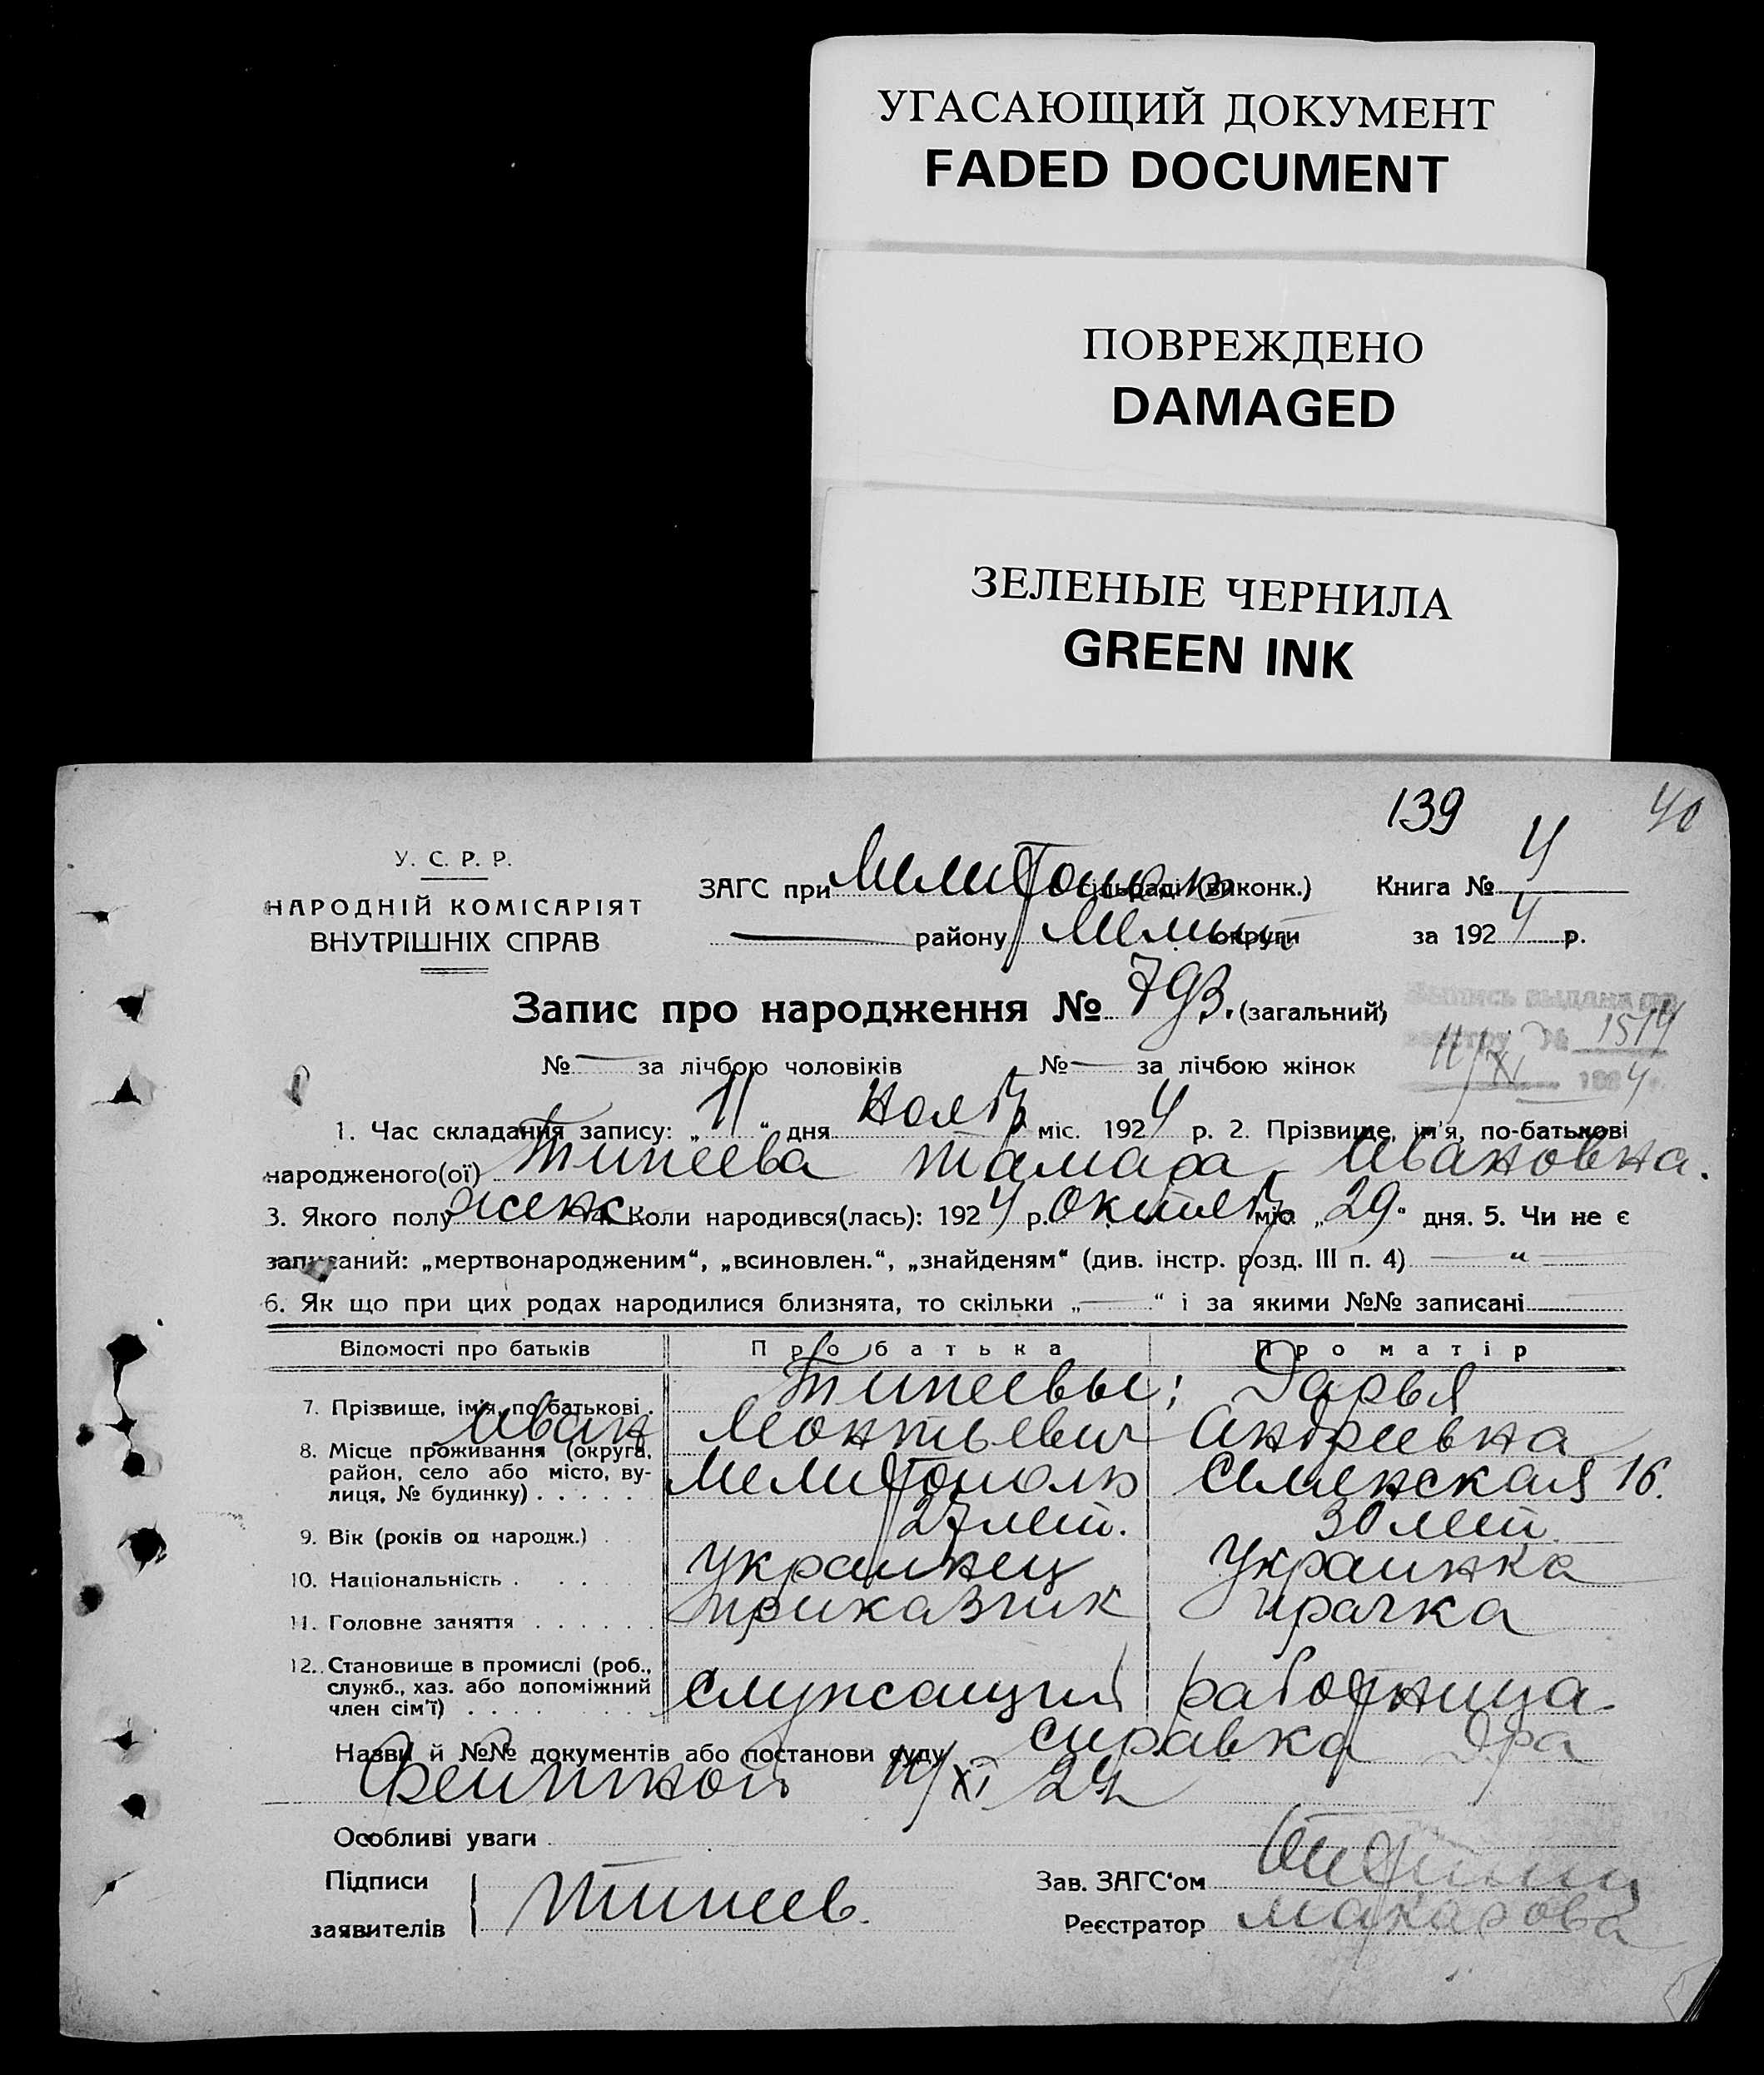 УГАСАЮЩИЙ ДОКУМЕНТ
FADED DOCUMENT
ПОВРЕЖДЕНО
DAMAGED
ЗЕЛЕНЫЕ ЧЕРНИЛА
GREEN INK
139 40
У. С. Р. Р.
НАРОДНІЙ КОМІСАРІЯТ
ВНУТРІШНІХ СПРАВ
ЗАГС при сільраді (виконк.) Книга № 4
району округи за 1924 р.
Запис про народження № 793. (загальний)
Выпись выдана по
реестру № 1514
11/XI 1924 г.
№ — за лічбою чоловіків № — за лічбою жінок
1. Час складання запису: „11“ дня Ноябр міс. 1924 р. 2. Прізвище, ім'я, по-батькові
народженого(ої) Типеева Тамара Ивановна.
3. Якого полу женс 4. Коли народився(лась): 1924 р. Октябр міс. „29“ дня. 5. Чи не є
записаний: „мертвонародженим“, „всиновлен.“, „знайденям“ (див. інстр. розд. III п. 4) — „ —
6. Як що при цих родах народилися близнята, то скільки „—“ і за якими №№ записані
Відомості про батьків Про батька Про матір
7. Прізвище, ім'я, по батькові. Типеевы; Дарья
Иван Леонтьевич Андреевна
8. Місце проживання (округа, район, село або місто, вулиця, № будинку) Мелитополь 16.
9. Вік (років од народж.) 27 лет. 30 лет.
10. Національність украинец Украинка
11. Головне заняття приказчик Прачка
12. Становище в промислі (роб., служб., хаз. або допоміжний член сім'ї) служащий работница
Назви й №№ документів або постанови суду справка Д-ра
XI 24
Особливі уваги
Підписи заявителів Типеев. Зав. ЗАГС'ом
Реєстратор Макарова